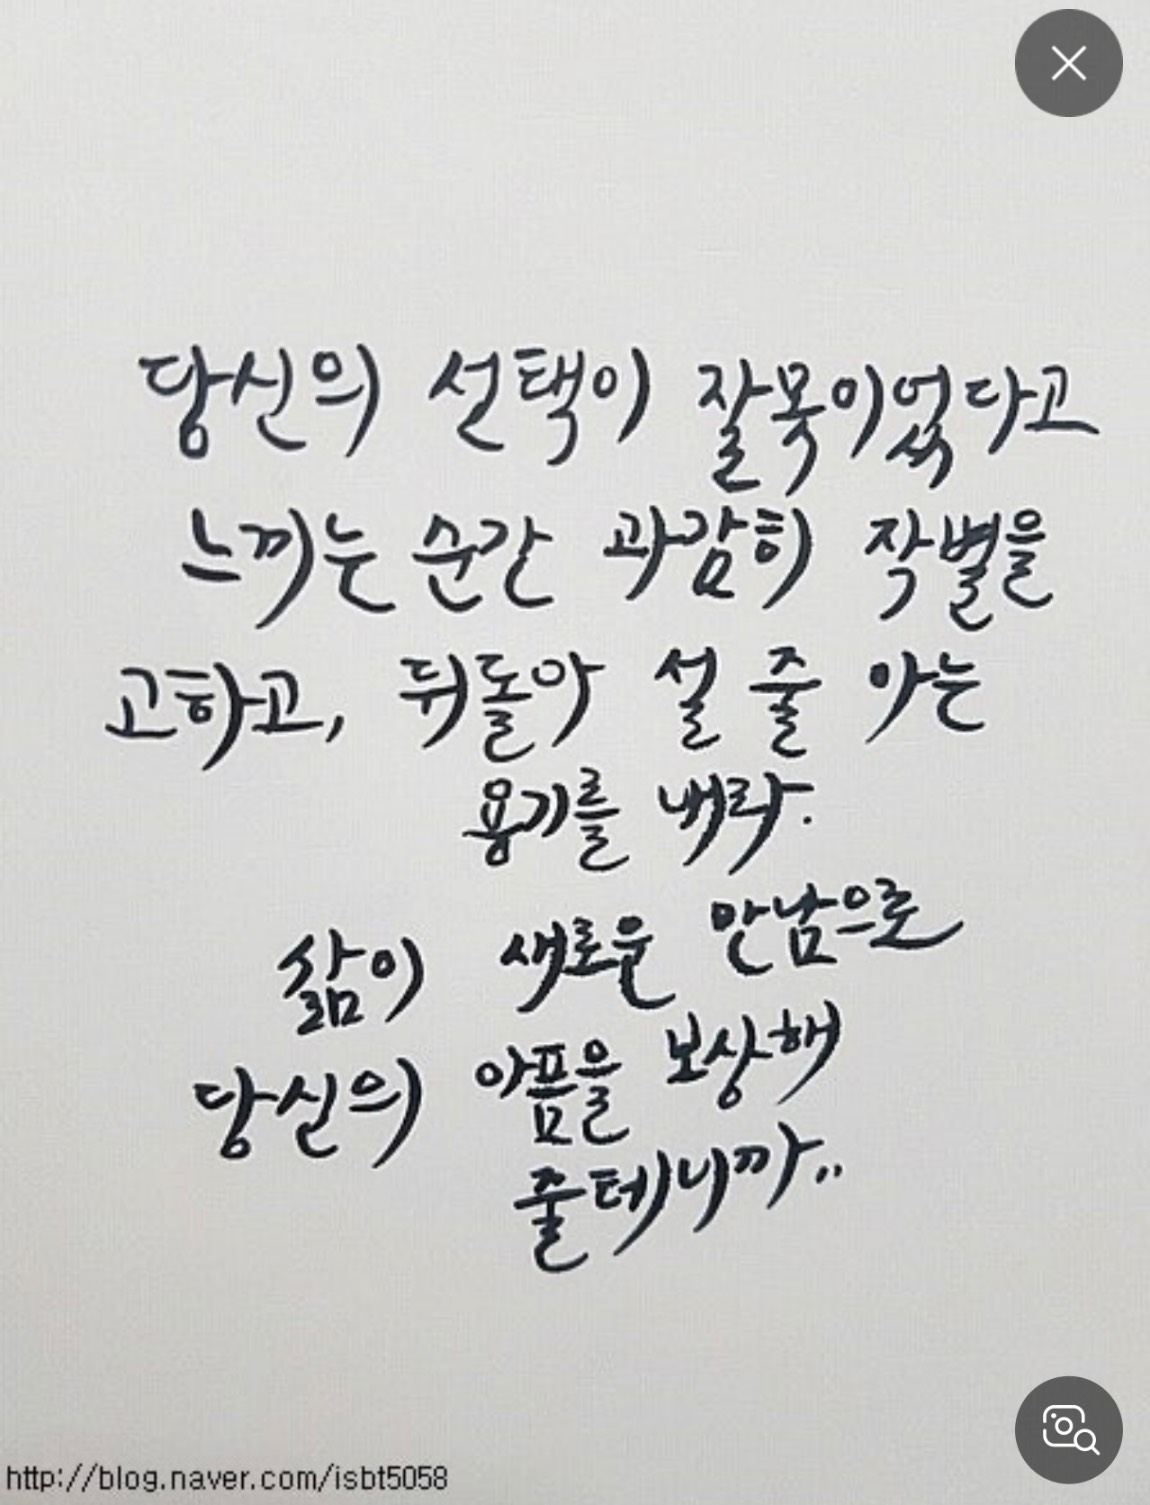 당신의 선택이 잘못이었다고
느끼는 순간 과감히 작별을
고하고, 뒤돌아 설 줄 아는
용기를 내라.
삶이 새로운 만남으로
당신의 아픔을 보상해
줄테니까..
http://blog.naver.com/isbt5058